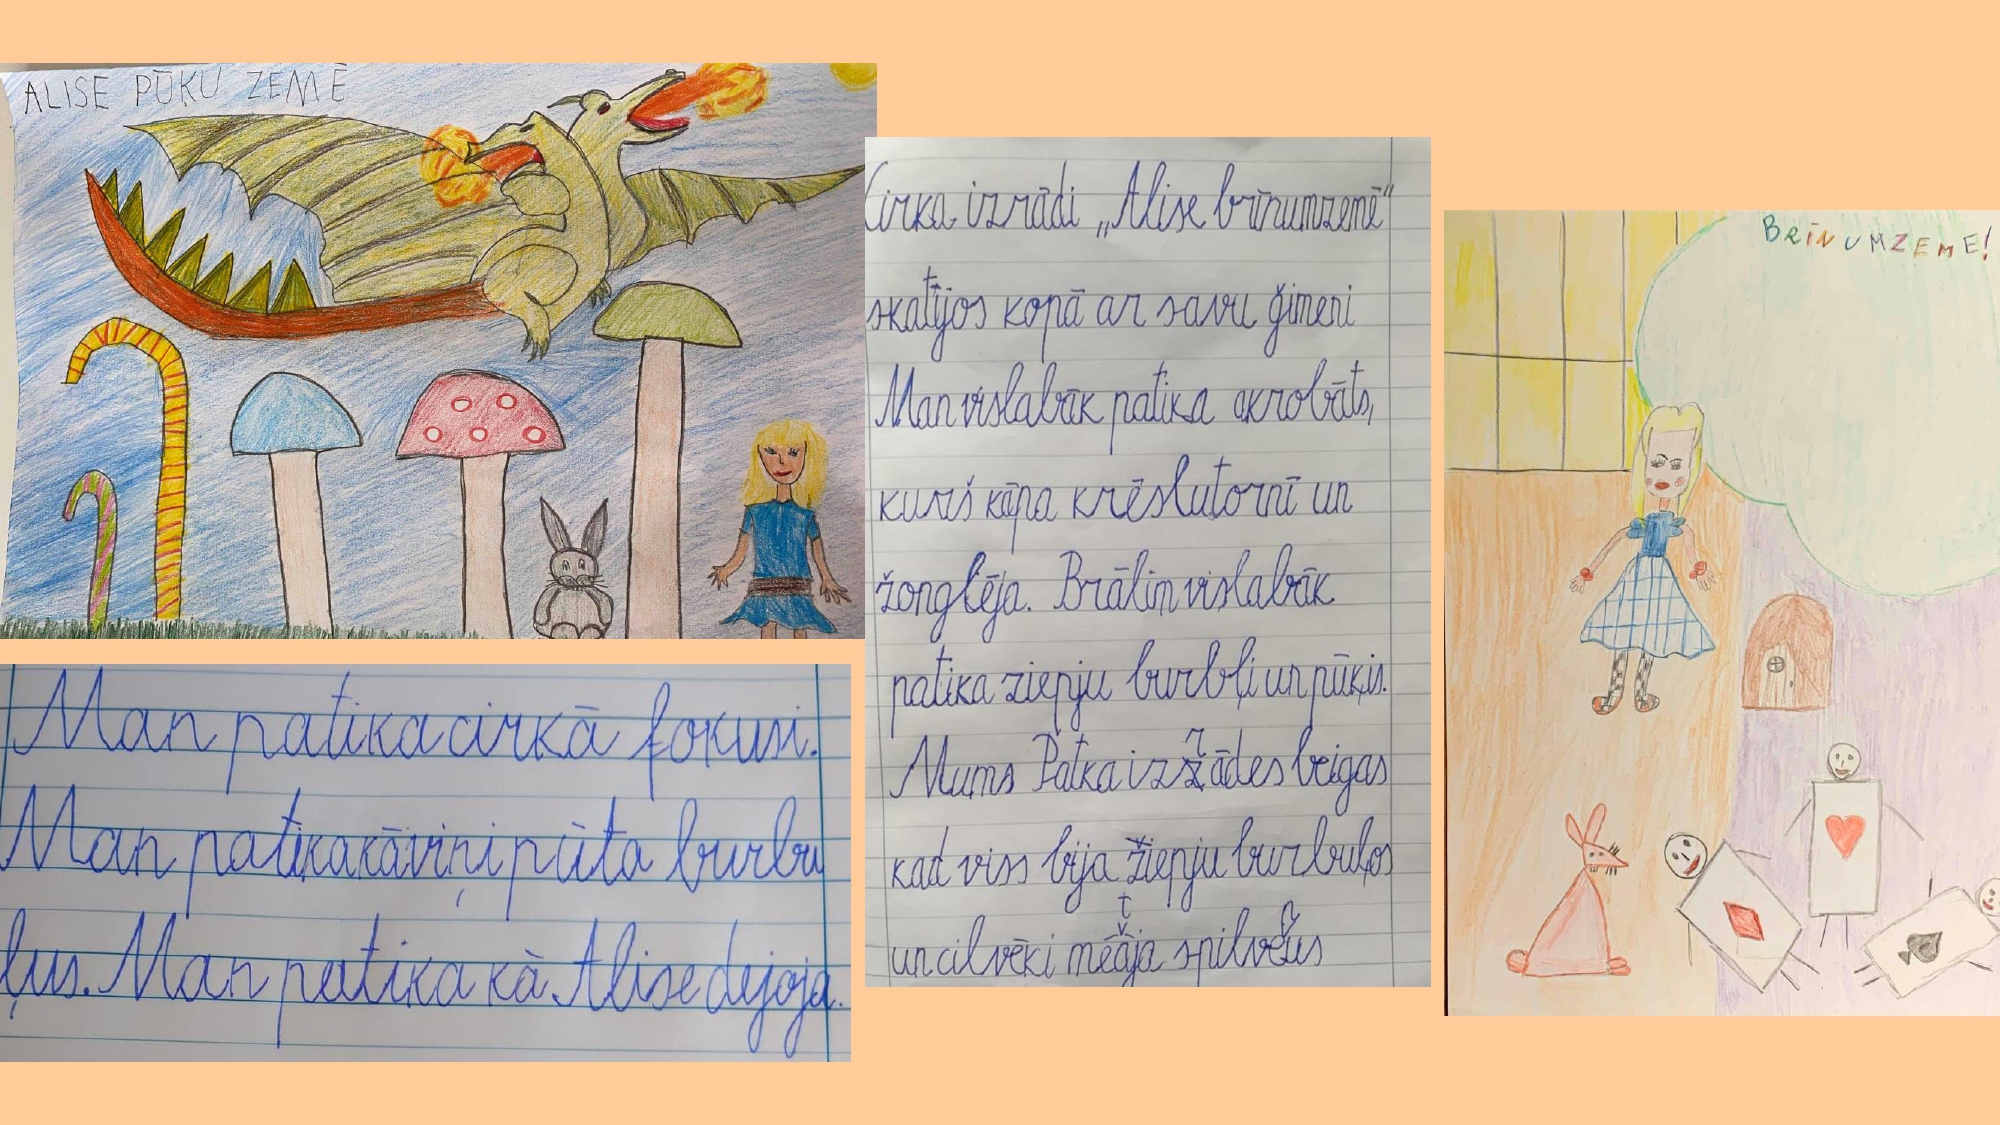 ALISE PŪKU ZEMĒ
Man patika cirkā fokusi.
Man patika kā viņi pūta burbu
ļus. Man patika kā Alise dejoja.
Cirka izrādi „Alise brīnumzemē"
skatījos kopā ar savu ģimeni
Man vislabāk patika akrobāts,
kurš kāpa krēslu tornī un
žonglēja. Brālim vislabāk
patika ziepju burbļi un pūķis.
Mums Patka izrādes beigas
kad viss bija žiepju burbuļos
un cilvēki mētāja spilvenus
BRĪNUMZEME!